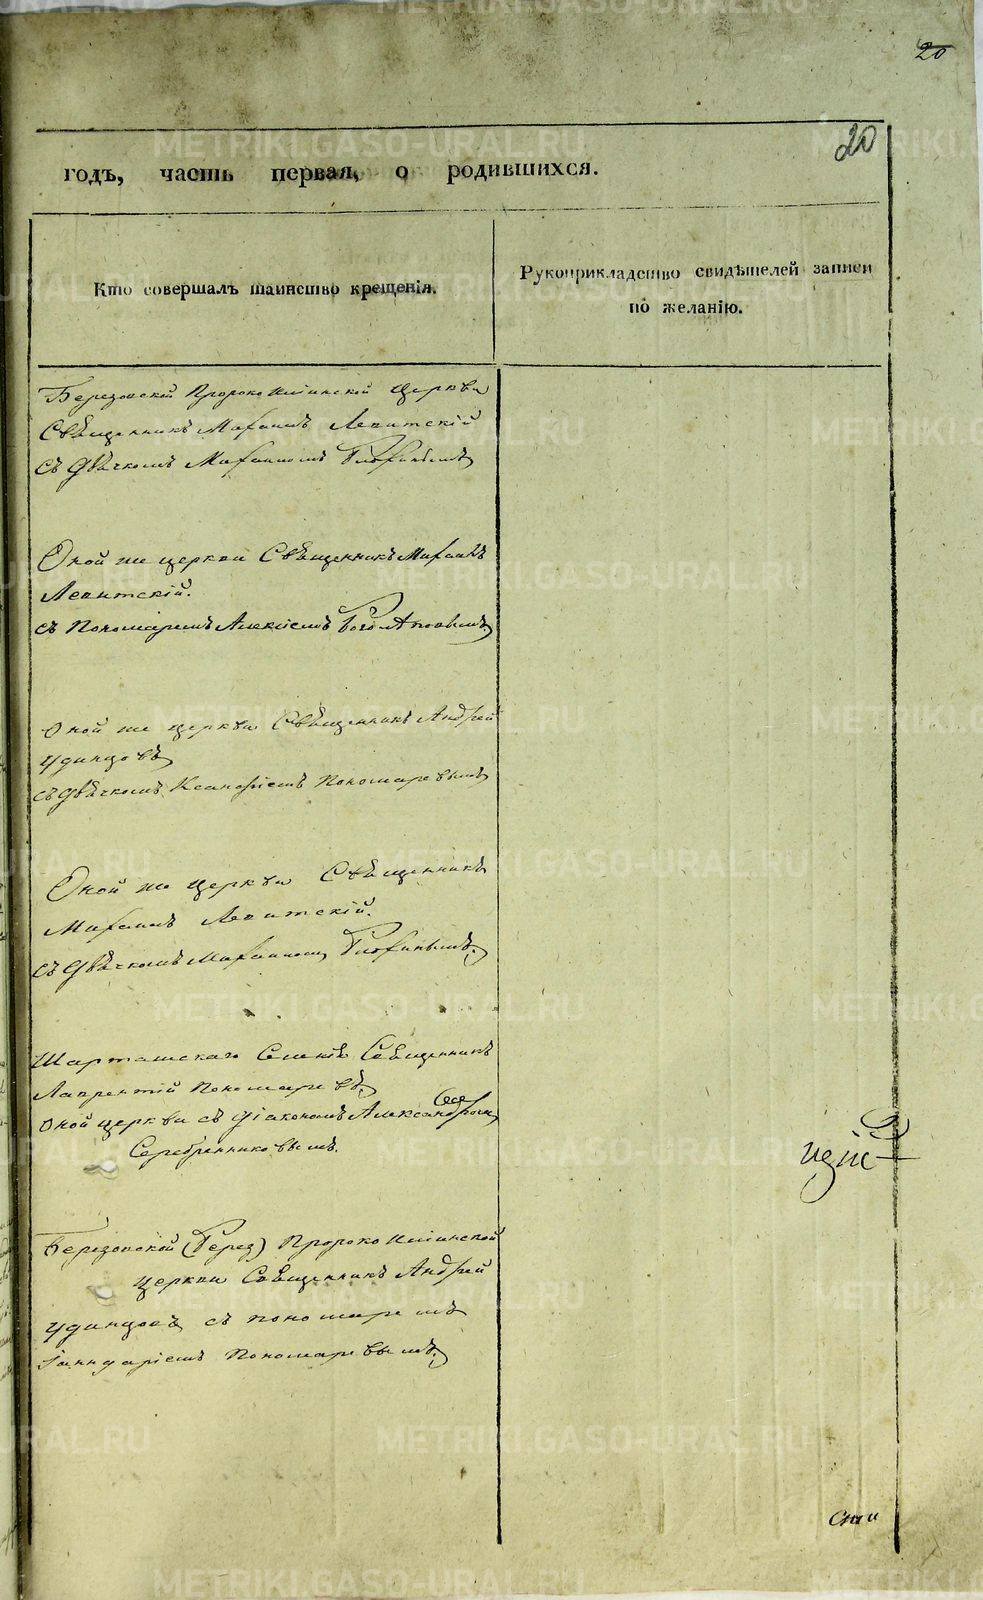 20
20
годъ, часть первая, о родившихся.
Кто совершалъ таинство крещенія.
Рукоприкладство свидѣтелей записи
по желанію.
Березовской Пророко Илiинской церкви
Священникъ Михаилъ Левитскій
съ Дьячкомъ Михаиломъ
Оной же церкви Священникъ Михаилъ
Левитскій.
съ Пономаремъ Алексіемъ
Оной же церкви Священникъ Андрей
Удинцовъ
съ Дьячкомъ Пономаревымъ
Оной же церкви Священникъ
Михаилъ Левитскій.
съ Дьячкомъ Михаиломъ
Шарташскаго Селенія Священникъ
Лаврентій Пономаревъ
Оной церкви съ діакономъ Александромъ
Серебренниковымъ.
Березовской Пророко Илiинской
церкви Священникъ Андрей
Удинцовъ съ пономаремъ
Іаннуаріемъ Пономаревымъ
METRIKI.GASO-URAL.RU